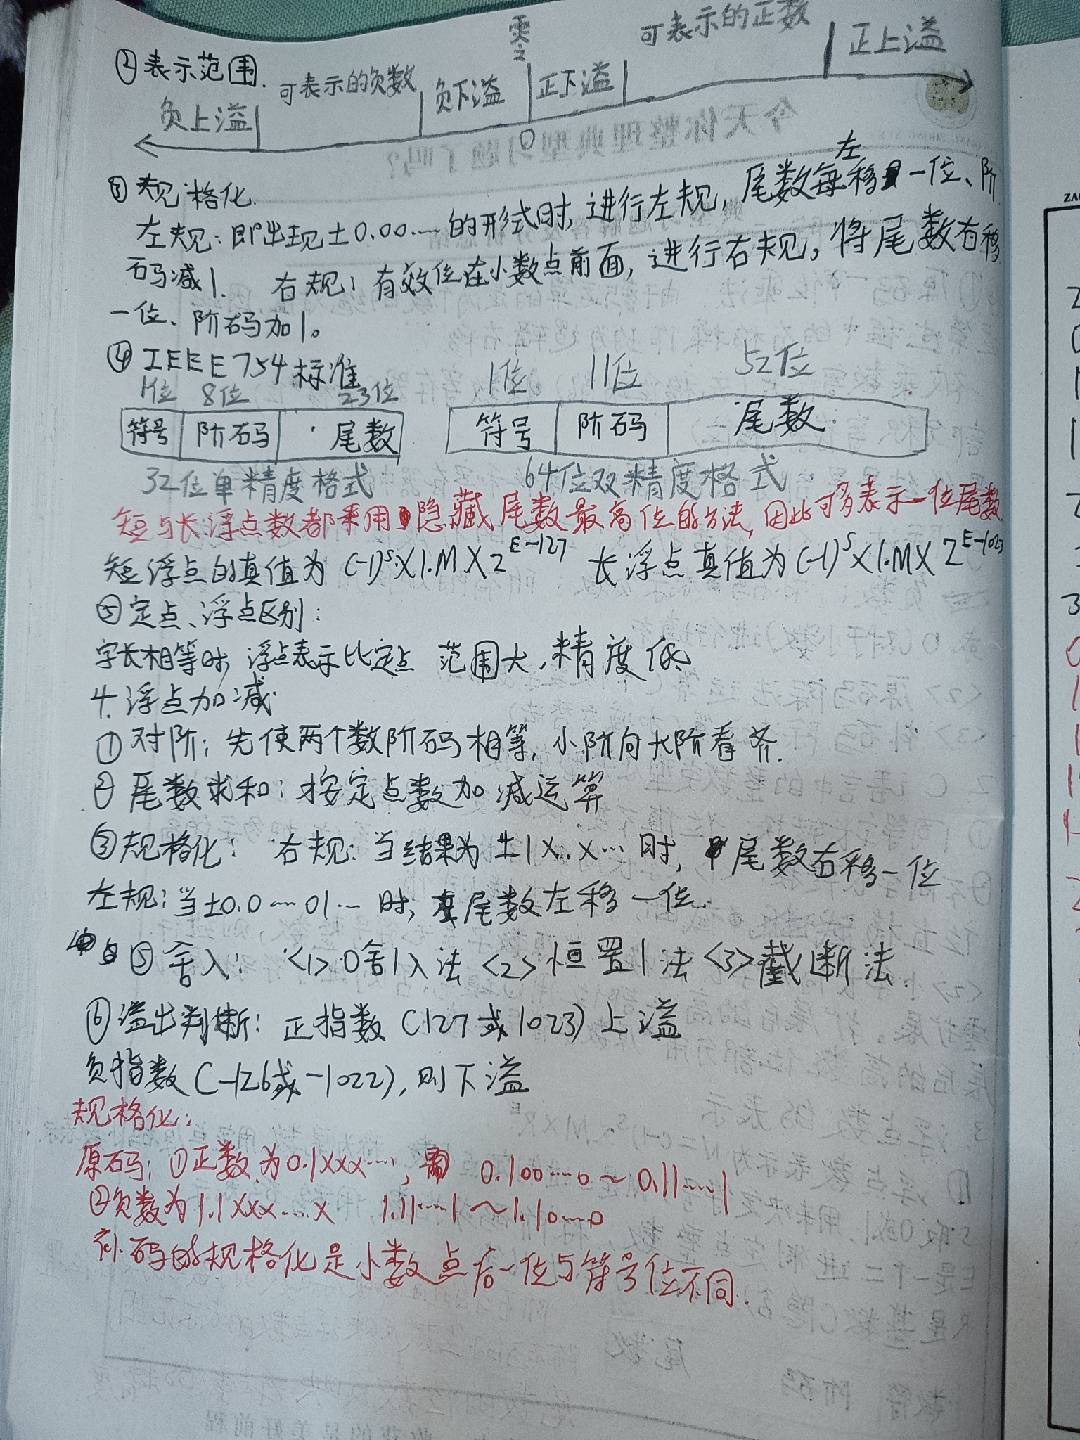 ②表示范围.
零
之
可表示的正数
正上溢
负上溢
可表示的负数
负下溢
正下溢
0
③规格化.
左规:即出现±0.00…的形式时,进行左规,尾数每左移一位、阶
码减1. 右规:有效位在小数点前面,进行右规,将尾数右移
一位、阶码加1。
④IEEE754标准
1位 8位 23位
1位 11位 52位
符号 阶码 尾数
符号 阶码 尾数
32位单精度格式
64位双精度格式
短与长浮点数都采用隐藏尾数最高位的方法,因此可多表示一位尾数
短浮点的真值为(-1)^S×1.M×2^E-127 长浮点真值为(-1)^S×1.M×2^E-1023
⑤定点、浮点区别:
字长相等时,浮点表示比定点 范围大,精度低
4.浮点加减
①对阶:先使两个数阶码相等,小阶向大阶看齐.
②尾数求和:按定点数加减运算
③规格化: 右规:当结果为±1X.X…时,尾数右移一位
左规:当±0.0…01…时,尾数左移一位.
⑤舍入: <1>0舍1入法<2>恒置1法<3>截断法.
⑥溢出判断:正指数(127或1023)上溢
负指数(-126或-1022),则下溢
规格化:
原码:①正数为0.1xxx…, 0.100…0~0.11…1
②负数为1.1xxx…x 1.11…1~1.10…0
补码的规格化是小数点后一位与符号位不同.